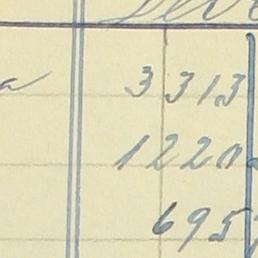 a 3313
1220
695